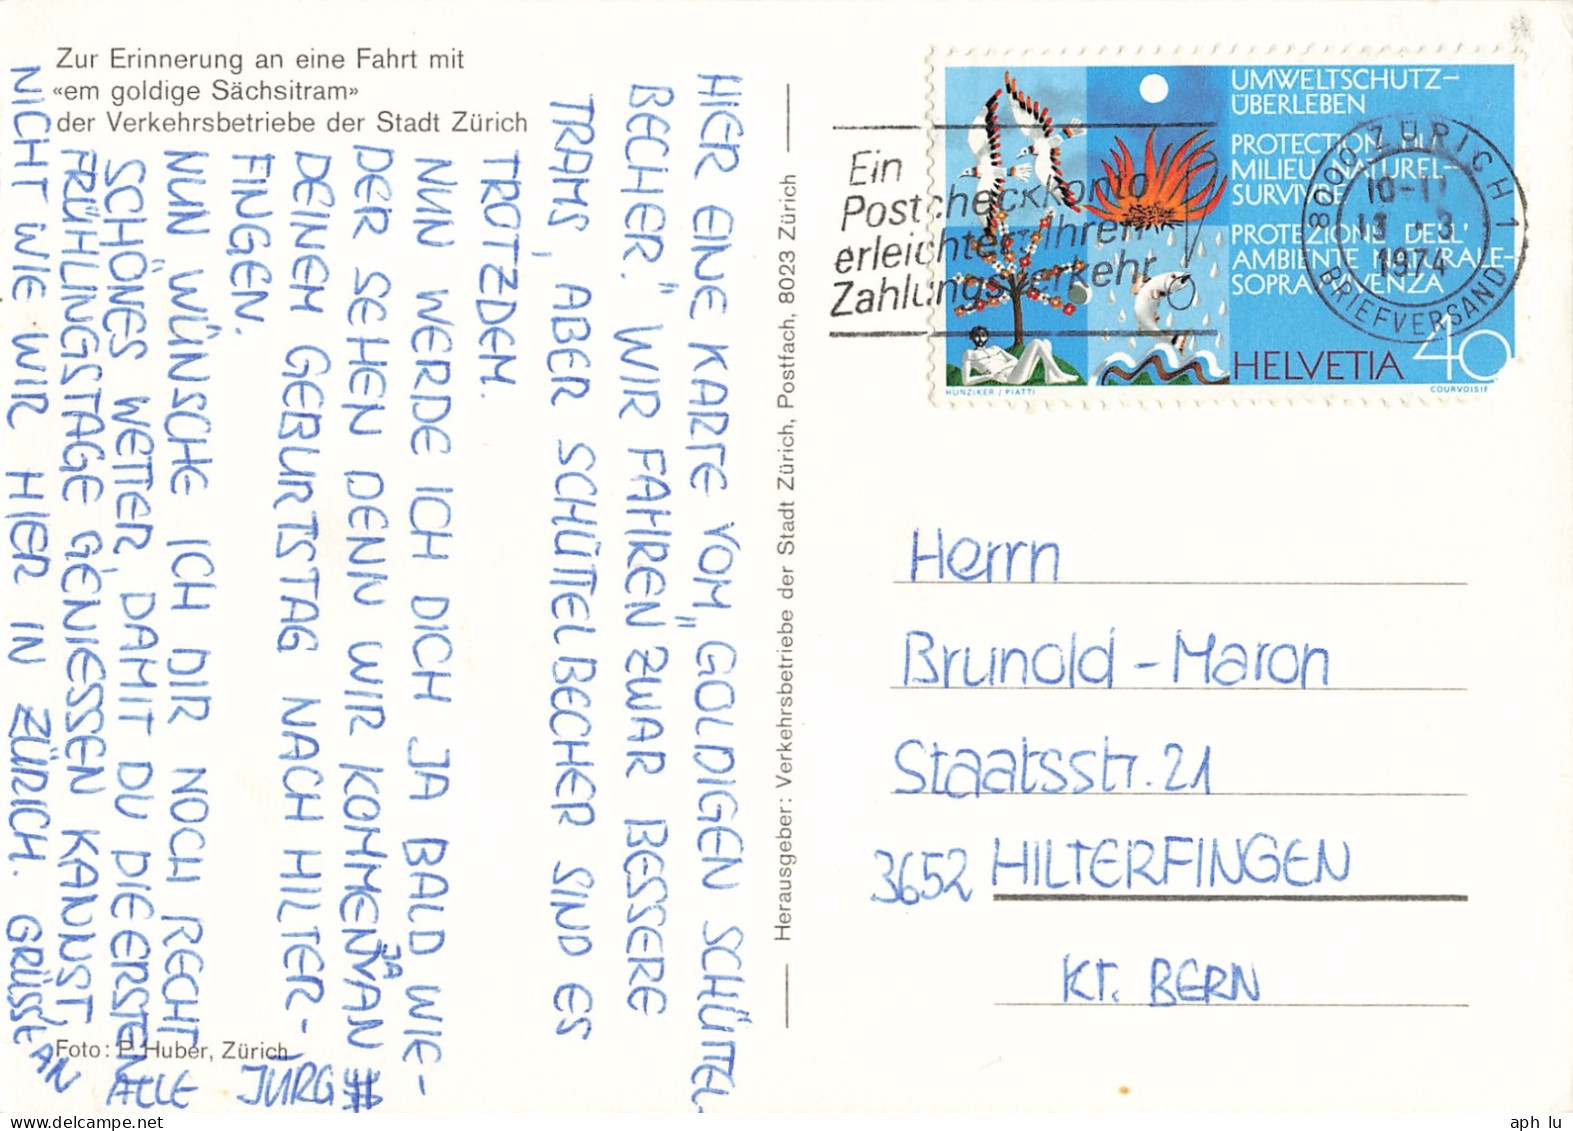 Zur Erinnerung an eine Fahrt mit
«em goldige Sächsitram»
der Verkehrsbetriebe der Stadt Zürich
HIER EINE KARTE VOM „GOLDIGEN SCHÜTTEL-
BECHER." WIR FAHREN ZWAR BESSERE
TRAMS, ABER SCHÜTTELBECHER SIND ES
TROTZDEM.
NUN WERDE ICH DICH JA BALD WIE-
DER SEHEN DENN WIR KOMMEN JA AN
DEINEM GEBURTSTAG NACH HILTER-
FINGEN.
NUN WÜNSCHE ICH DIR NOCH RECHT
SCHÖNES WETTER, DAMIT DU DIE ERSTEN
FRÜHLINGSTAGE GENIESSEN KANNST,
NICHT WIE WIR HIER IN ZÜRICH. GRÜSSE AN
ALLE JÜRG
Foto: P. Huber, Zürich
Herausgeber: Verkehrsbetriebe der Stadt Zürich, Postfach, 8023 Zürich
Ein
Postcheckkonto
erleichtert Ihren
Zahlungsverkehr
UMWELTSCHUTZ-
ÜBERLEBEN
PROTECTION DU
MILIEU NATUREL-
SURVIVRE
PROTEZIONE DELL'
AMBIENTE NATURALE-
SOPRAVVIVENZA
HELVETIA 40
HUNZIKER / PIATTI
COURVOISIER
8000 ZÜRICH 1
10-11
13.3
1974
BRIEFVERSAND
Herrn
Brunold-Maron
Staatsstr. 21
3652 HILTERFINGEN
Kt. BERN
aph lu